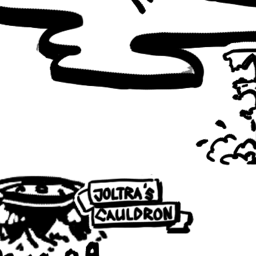 JOLTRA'S
CAULDRON